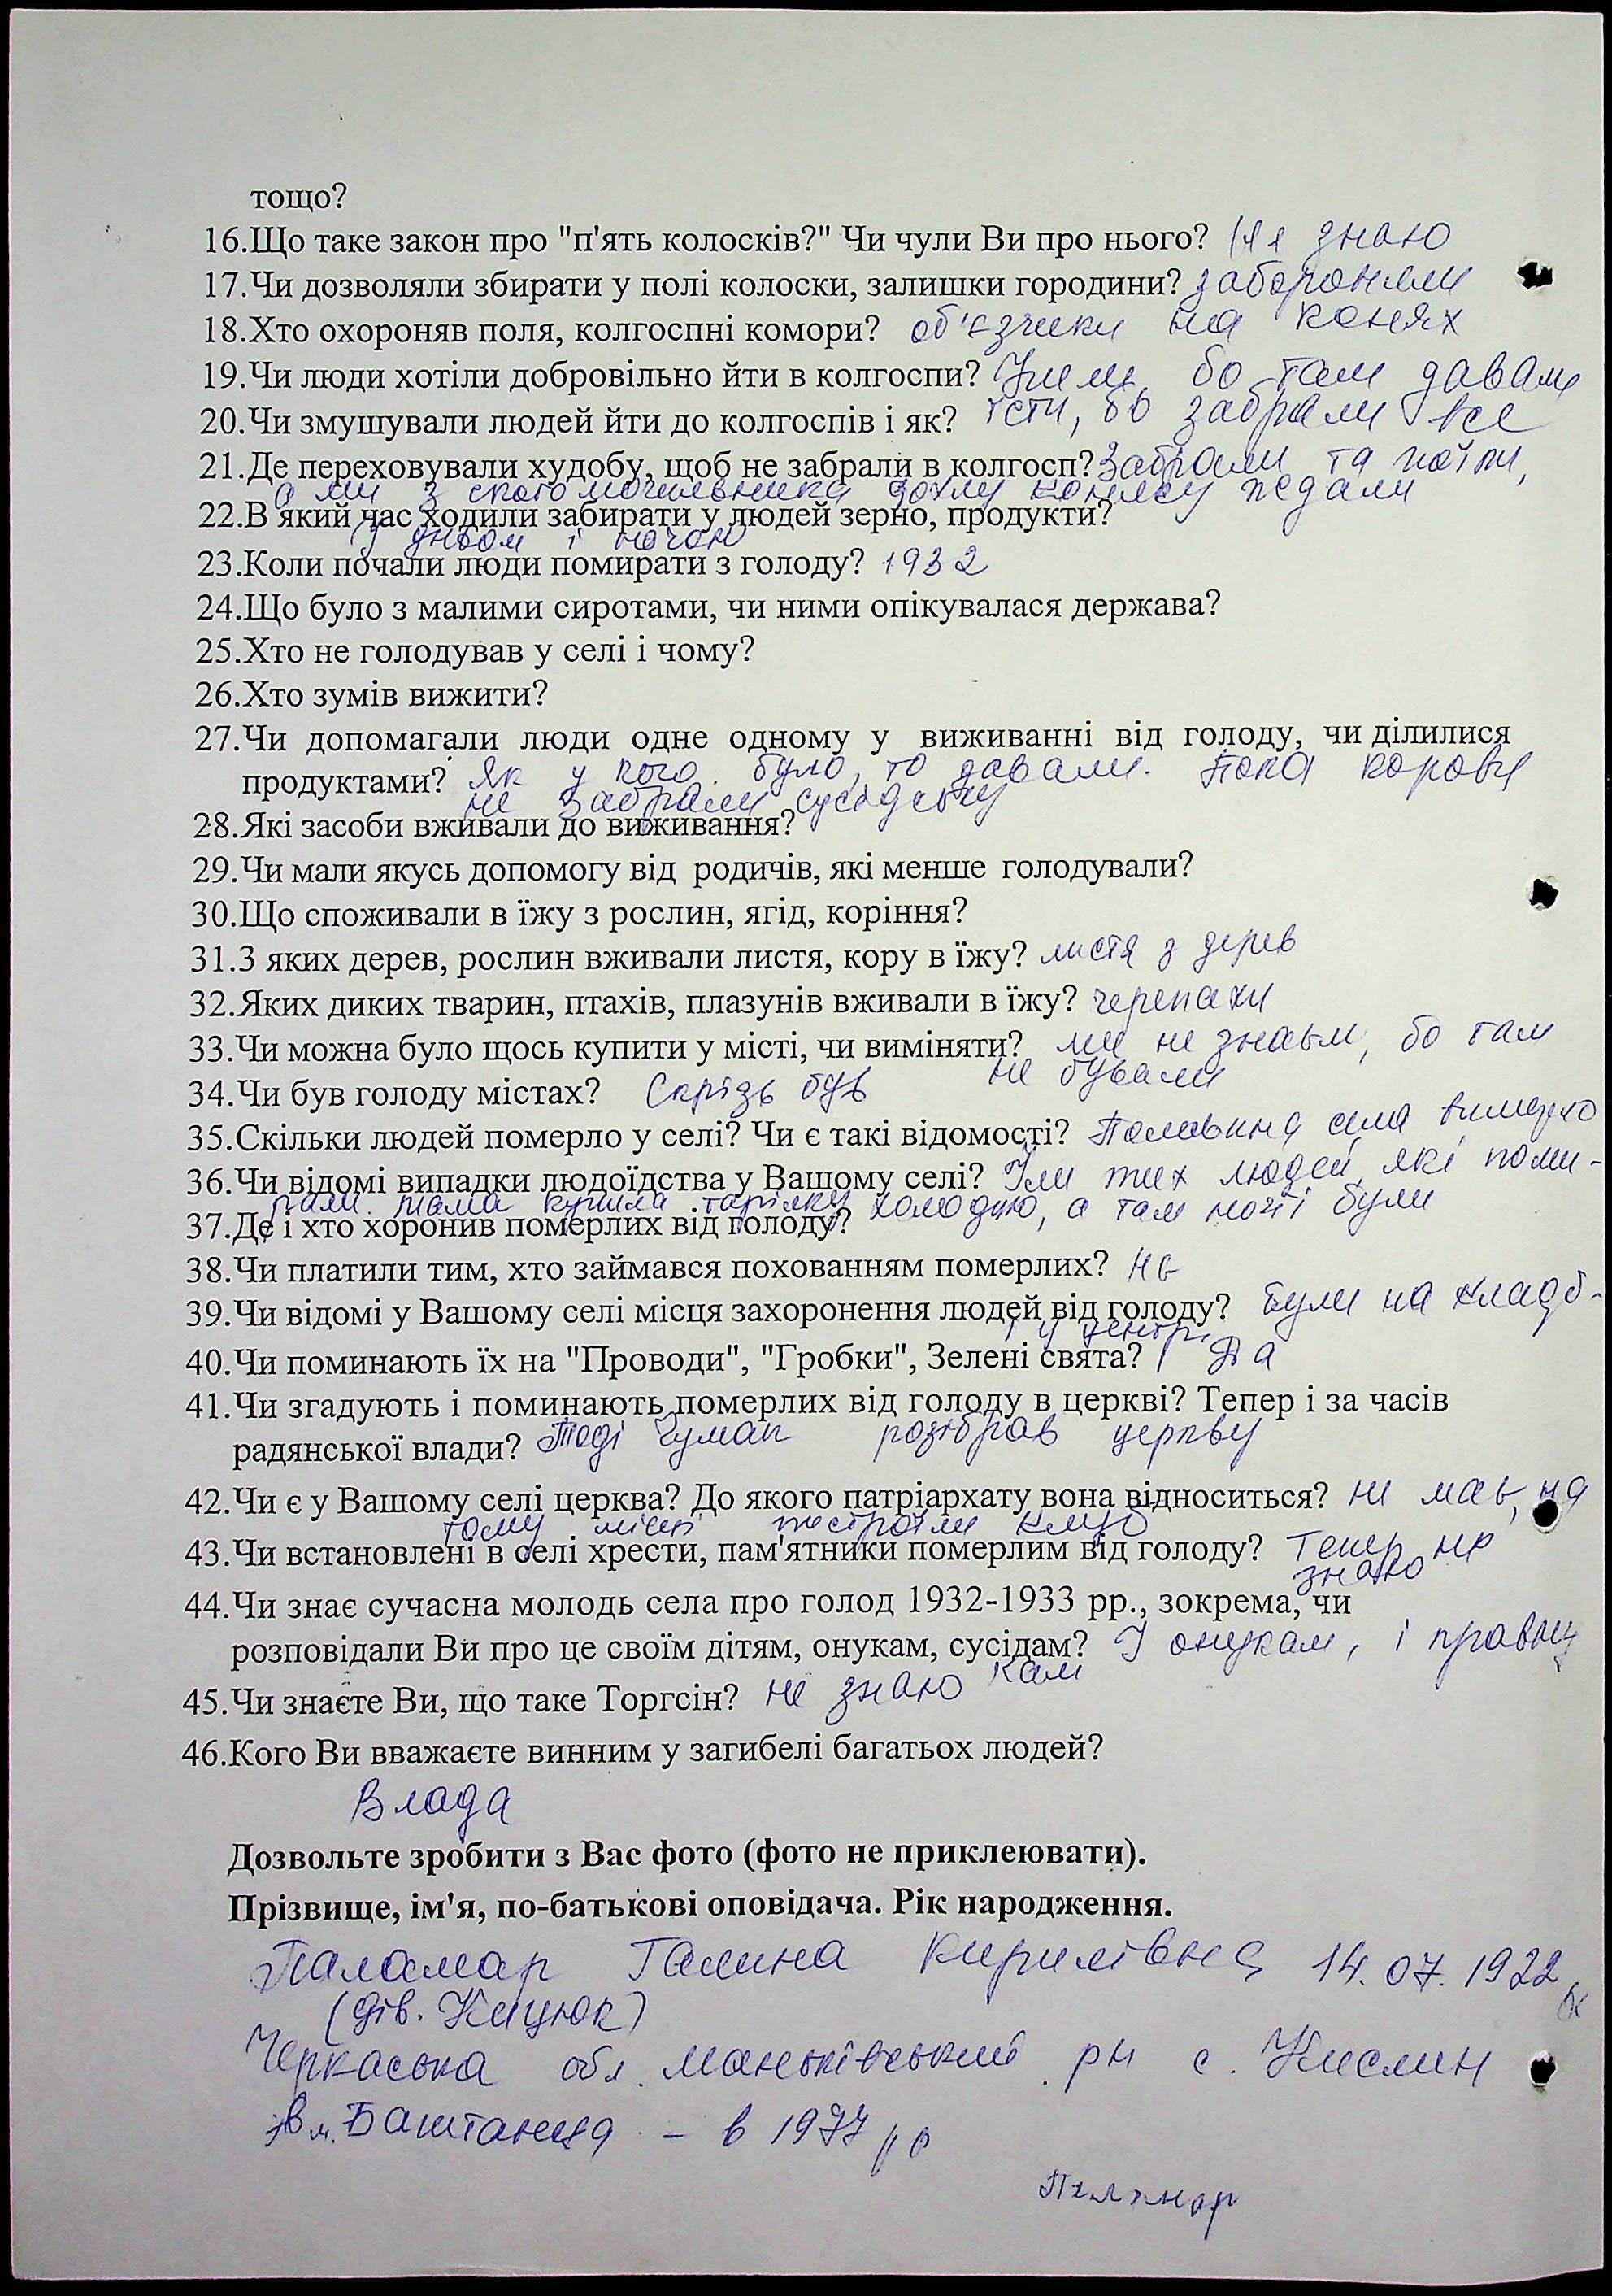 тощо?
16.Що таке закон про "п'ять колосків?" Чи чули Ви про нього? знаю
17.Чи дозволяли збирати у полі колоски, залишки городини? забороняли
18.Хто охороняв поля, колгоспні комори? об'єзчики на конях
19.Чи люди хотіли добровільно йти в колгоспи? Йшли, бо там давали
20.Чи змушували людей йти до колгоспів і як? їсти, бо забрали все
21.Де переховували худобу, щоб не забрали в колгосп? Забрали та поїли,
а ми з скотомогильника дохлу конячку
22.В який час ходили забирати у людей зерно, продукти?
І дньом і ночою
23.Коли почали люди помирати з голоду? 1932
24.Що було з малими сиротами, чи ними опікувалася держава?
25.Хто не голодував у селі і чому?
26.Хто зумів вижити?
27.Чи допомагали люди одне одному у виживанні від голоду, чи ділилися
продуктами? Як у кого було, то давали. Пока корову
не забрали сусідську
28.Які засоби вживали до виживання?
29.Чи мали якусь допомогу від родичів, які менше голодували?
30.Що споживали в їжу з рослин, ягід, коріння?
31.З яких дерев, рослин вживали листя, кору в їжу? листя з дерев
32.Яких диких тварин, птахів, плазунів вживали в їжу? черепахи
33.Чи можна було щось купити у місті, чи виміняти? ми не знаєм, бо там
не бували
34.Чи був голоду містах? Скрізь був
35.Скільки людей померло у селі? Чи є такі відомості? Половина села вимерло
36.Чи відомі випадки людоїдства у Вашому селі? Їли тих людей, які поми-
рали. Мама купила тарілку холодцю, а там ногті були
37.Де і хто хоронив померлих від голоду?
38.Чи платили тим, хто займався похованням померлих? Не
39.Чи відомі у Вашому селі місця захоронення людей від голоду? Були на кладб-
і у центрі
40.Чи поминають їх на "Проводи", "Гробки", Зелені свята? Да
41.Чи згадують і поминають померлих від голоду в церкві? Тепер і за часів
радянської влади? Тоді Чумак розібрав церкву
42.Чи є у Вашому селі церква? До якого патріархату вона відноситься? не має, на
тому місці построїли клуб
43.Чи встановлені в селі хрести, пам'ятники померлим від голоду? Тепер не
знаю
44.Чи знає сучасна молодь села про голод 1932-1933 рр., зокрема, чи
розповідали Ви про це своїм дітям, онукам, сусідам? І онукам, і правну
кам
45.Чи знаєте Ви, що таке Торгсін? не знаю
46.Кого Ви вважаєте винним у загибелі багатьох людей?
Влада
Дозвольте зробити з Вас фото (фото не приклеювати).
Прізвище, ім'я, по-батькові оповідача. Рік народження.
Паламар Галина Кирилівна 14.07.1922
(дів. Кицюк)
Черкаська обл. Маньківський рн с. Кислин
в м. Баштанка - в 1977 рр
Паламар